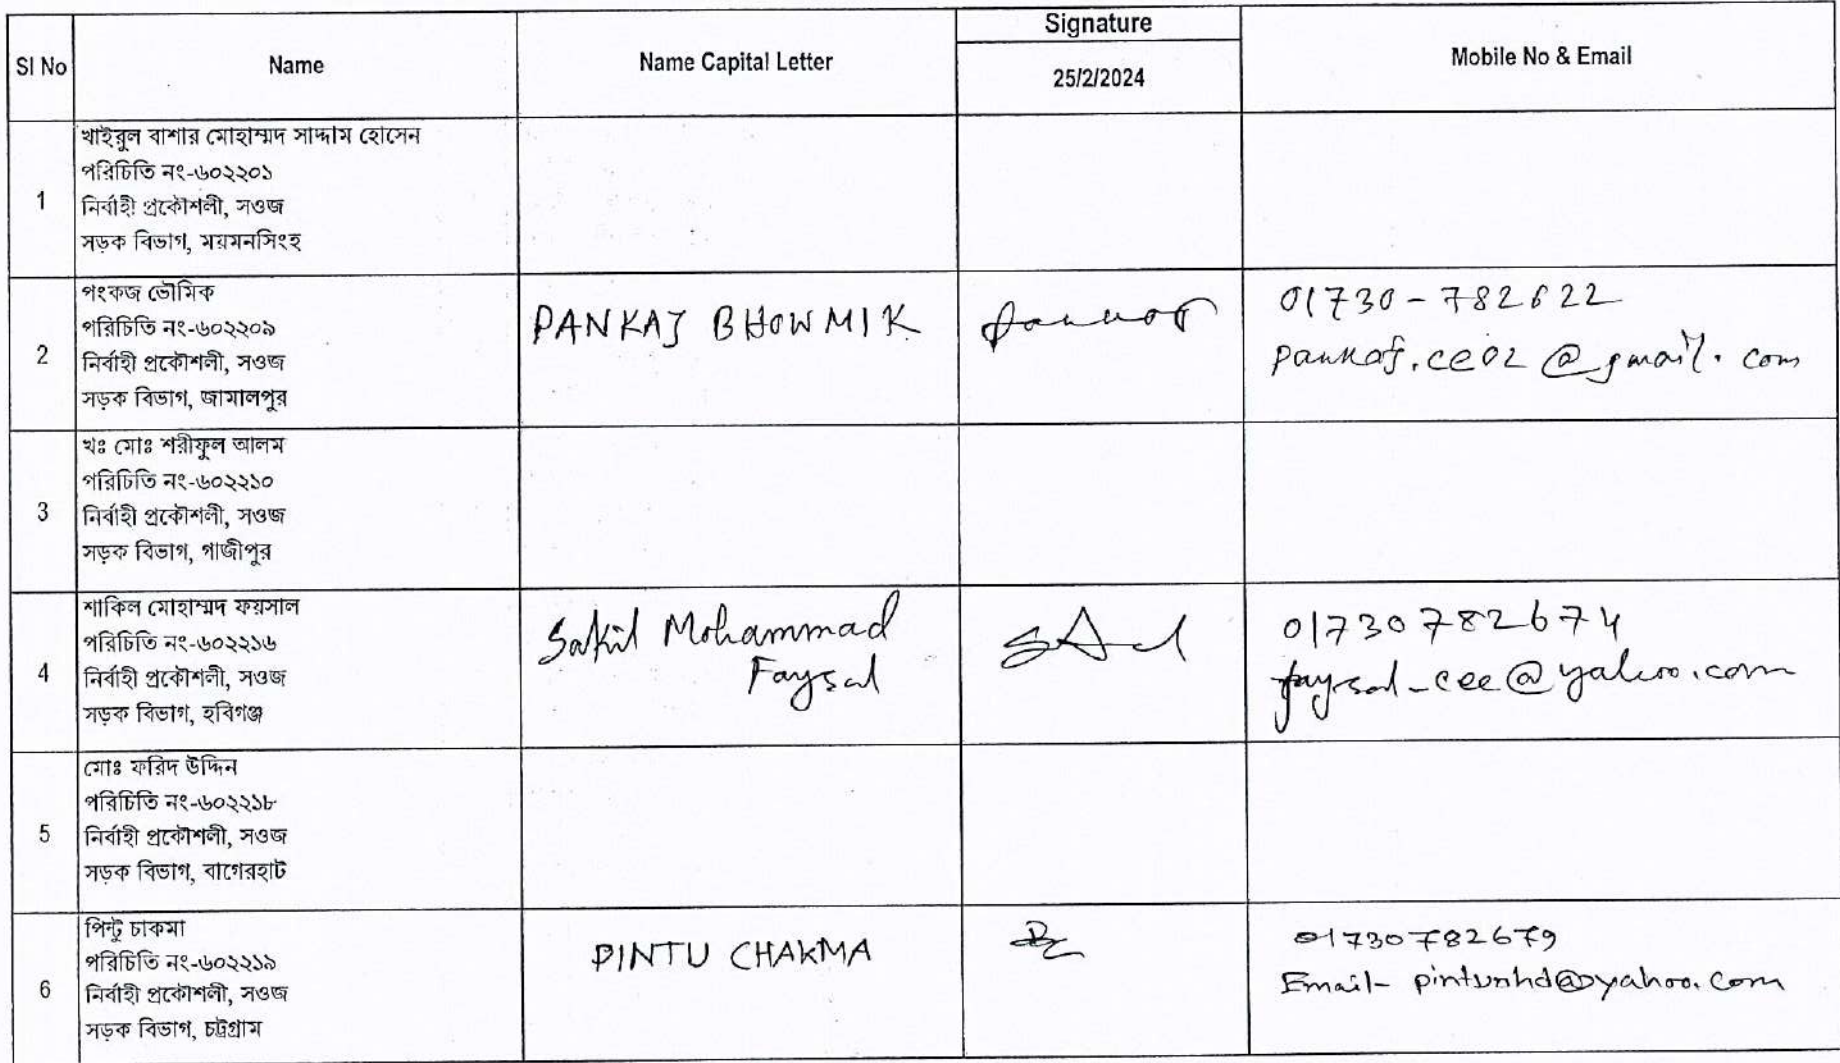 Sl No
Name
Name Capital Letter
Signature
25/2/2024
Mobile No & Email
1
খাইরুল বাশার মোহাম্মদ সাদ্দাম হোসেন
পরিচিতি নং-৬০২২০১
নির্বাহী প্রকৌশলী, সওজ
সড়ক বিভাগ, ময়মনসিংহ
2
পংকজ ভৌমিক
পরিচিতি নং-৬০২২০৯
নির্বাহী প্রকৌশলী, সওজ
সড়ক বিভাগ, জামালপুর
PANKAJ BHOWMIK
01730-782622
pankaj.ce02@gmail.com
3
খঃ মোঃ শরীফুল আলম
পরিচিতি নং-৬০২২১০
নির্বাহী প্রকৌশলী, সওজ
সড়ক বিভাগ, গাজীপুর
4
শাকিল মোহাম্মদ ফয়সাল
পরিচিতি নং-৬০২২১৬
নির্বাহী প্রকৌশলী, সওজ
সড়ক বিভাগ, হবিগঞ্জ
Sakil Mohammad
Faysal
01730782674
faysal_cee@yahoo.com
5
মোঃ ফরিদ উদ্দিন
পরিচিতি নং-৬০২২১৮
নির্বাহী প্রকৌশলী, সওজ
সড়ক বিভাগ, বাগেরহাট
6
পিন্টু চাকমা
পরিচিতি নং-৬০২২১৯
নির্বাহী প্রকৌশলী, সওজ
সড়ক বিভাগ, চট্টগ্রাম
PINTU CHAKMA
01730782679
Email- pinturhd@yahoo.com